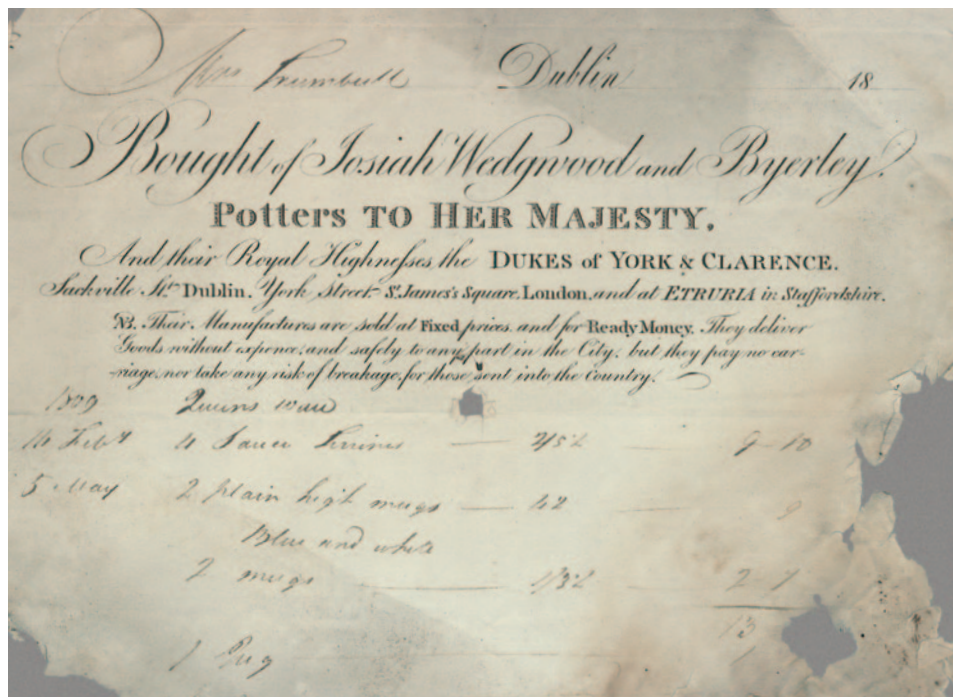 Mrs Trumbull Dublin 18
Bought of Josiah Wedgwood and Byerley.
Potters TO HER MAJESTY.
And their Royal Highneſses, the DUKES of YORK & CLARENCE.
Sackville St. Dublin. York Street St James's Square, London, and at ETRURIA in Staffordshire.
NB. Their Manufactures are sold at Fixed prices, and for Ready Money. They deliver
Goods without expence, and safely to any part in the City; but they pay no car-
-riage, nor take any risk of breakage, for those sent into the Country.
1809 Queens ware
14 Feby 4 Sauce 2/5½ 9-10
5 May 2 plain high mugs 4½ 9
Blue and white
2 mugs 1/3½ 2-7
13
1